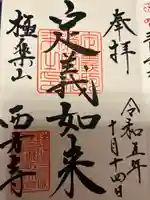 奉拝
令和五年
十月十四日
定義如来
極楽山
西方寺